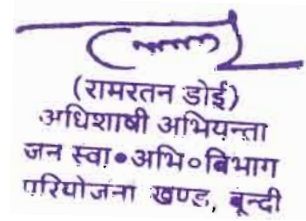 (रामरतन डोई)
अधिशाषी अभियन्ता
जन स्वा॰अभि॰विभाग
परियोजना खण्ड, बून्दी